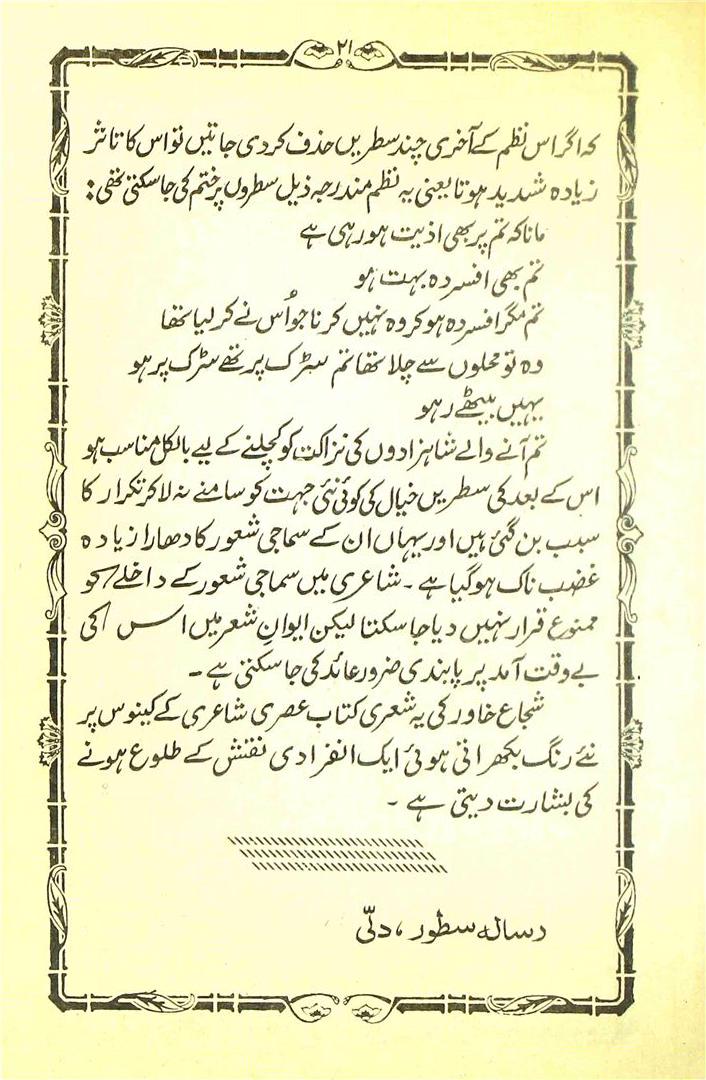 ۲۱
کہ اگر اس نظم کے آخری چند سطریں حذف کر دی جاتیں تو اس کا تاثر
زیادہ شدید ہوتا یعنی یہ نظم مندرجہ ذیل سطروں پر ختم کی جا سکتی تھی:
مانا کہ تم پر بھی اذیت ہو رہی ہے
تم بھی افسردہ بہت ہو
تم مگر افسردہ ہو کر وہ نہیں کرنا جو اُس نے کر لیا تھا
وہ تو محلوں سے چلا تھا تم سڑک پر تھے سڑک پر ہو
یہیں بیٹھے رہو
تم آنے والے شاہزادوں کی نزاکت کو کچلنے کے لیے بالکل مناسب ہو
اس کے بعد کی سطریں خیال کی کوئی نئی جہت کو سامنے نہ لا کر تکرار کا
سبب بن گئی ہیں اور یہاں ان کے سماجی شعور کا دھارا زیادہ
غضب ناک ہو گیا ہے۔ شاعری میں سماجی شعور کے داخلے کو
ممنوع قرار نہیں دیا جا سکتا لیکن ایوانِ شعر میں اس کی
بے وقت آمد پر پابندی ضرور عائد کی جا سکتی ہے۔
شجاع خاور کی یہ شعری کتاب عصری شاعری کے کینوس پر
نئے رنگ بکھراتی ہوئی ایک انفرادی نقش کے طلوع ہونے
کی بشارت دیتی ہے۔
رسالہ سطور، دلّی